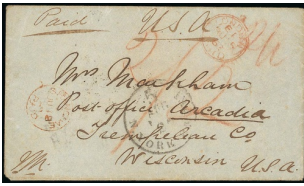 Paid U.S.A.
Mrs Markham
Post office Arcadia
Trempeleau Co
Wisconsin U.S.A.
YORK